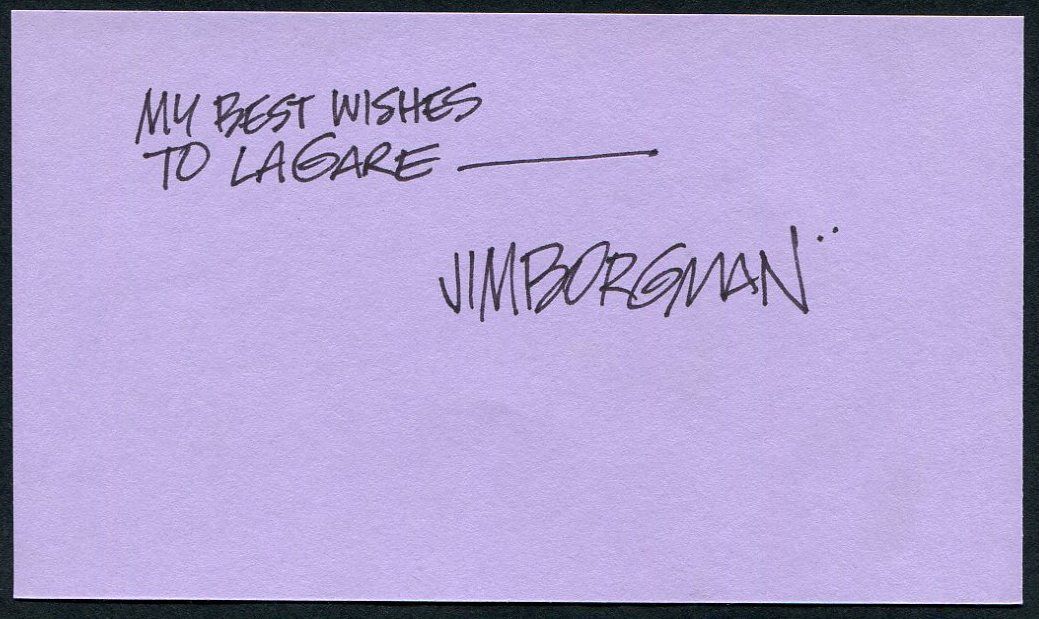 MY BEST WISHES
TO LAGARE —
JIM BORGMAN